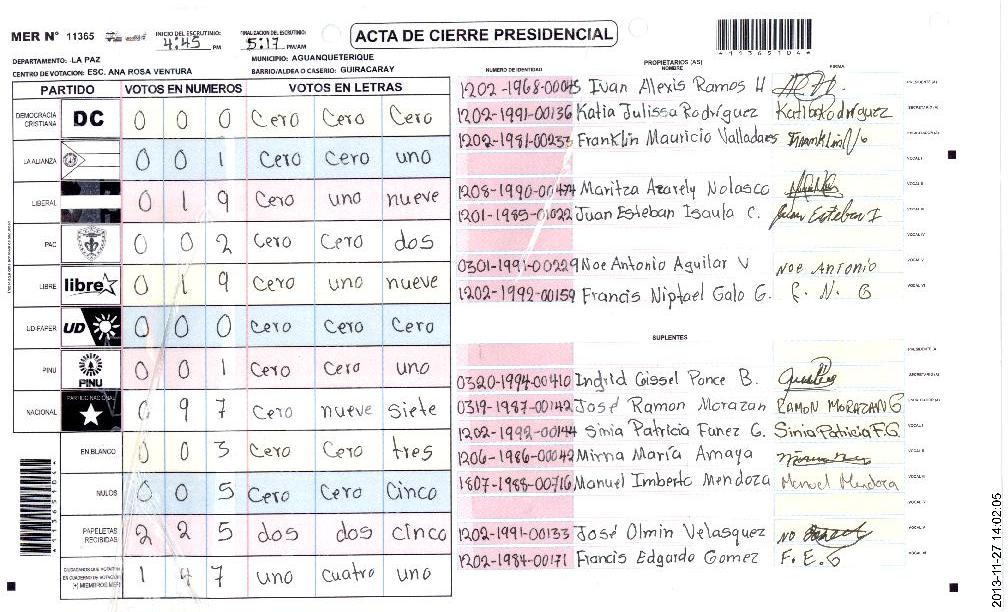 MER Nº 11365
INICIO DEL ESCRUTINIO: 4:45 PM
FINALIZACION DEL ESCRUTINIO: 5:17 PM/AM
ACTA DE CIERRE PRESIDENCIAL
4113651064
DEPARTAMENTO: LA PAZ
MUNICIPIO: AGUANQUETERIQUE
CENTRO DE VOTACION: ESC. ANA ROSA VENTURA
BARRIO/ALDEA O CASERIO: GUIRACARAY
PARTIDO VOTOS EN NUMEROS VOTOS EN LETRAS
DEMOCRACIA CRISTIANA DC 0 0 0 Cero Cero Cero
LA ALIANZA 0 0 1 Cero Cero uno
LIBERAL 0 1 9 Cero uno nueve
PAC 0 0 2 Cero Cero dos
LIBRE libre 0 1 9 Cero uno nueve
UD-FAPER UD 0 0 0 Cero Cero Cero
PINU PINU 0 0 1 Cero Cero uno
NACIONAL PARTIDO NACIONAL 0 9 7 Cero nueve siete
EN BLANCO 0 0 3 Cero Cero tres
NULOS 0 0 5 Cero Cero Cinco
PAPELETAS RECIBIDAS 2 2 5 dos dos cinco
CIUDADANOS QUE VOTARON EN CUADERNO DE VOTACION (+) MIEMBROS MER 1 4 7 uno cuatro uno
PROPIETARIOS (AS)
NUMERO DE IDENTIDAD NOMBRE FIRMA
1202-1968-00045 Ivan Alexis Ramos H PRESIDENTE (A)
1202-1991-00136 Katia Julissa Rodríguez Katia Rodríguez SECRETARIO (A)
1202-1981-00233 Franklin Mauricio Valladares Franklin
VOCAL I
1208-1990-00474 Maritza Azarely Nolasco VOCAL II
1201-1985-01022 Juan Esteban Isaula C. Juan Esteban I VOCAL III
VOCAL IV
0301-1991-00229 Noe Antonio Aguilar V NOE ANTONIO VOCAL V
1202-1992-00159 Francis Niptael Galo G. F. N. G VOCAL VI
SUPLENTES
PRESIDENTE (A)
0320-1994-00410 Ingrid Gissel Ponce B. SECRETARIO (A)
0319-1987-00142 José Ramon Morazan RAMON MORAZAN G
1202-1992-00144 Sinia Patricia Funez G. Sinia Patricia F.G. VOCAL I
1206-1986-00042 Mirna María Amaya VOCAL II
1807-1988-00716 Manuel Imberto Mendoza Manuel Mendoza VOCAL III
1202-1991-00133 José Olmin Velasquez VOCAL V
1202-1984-00171 Francis Edgardo Gomez F. E. G VOCAL VI
2013-11-27 14:02:05